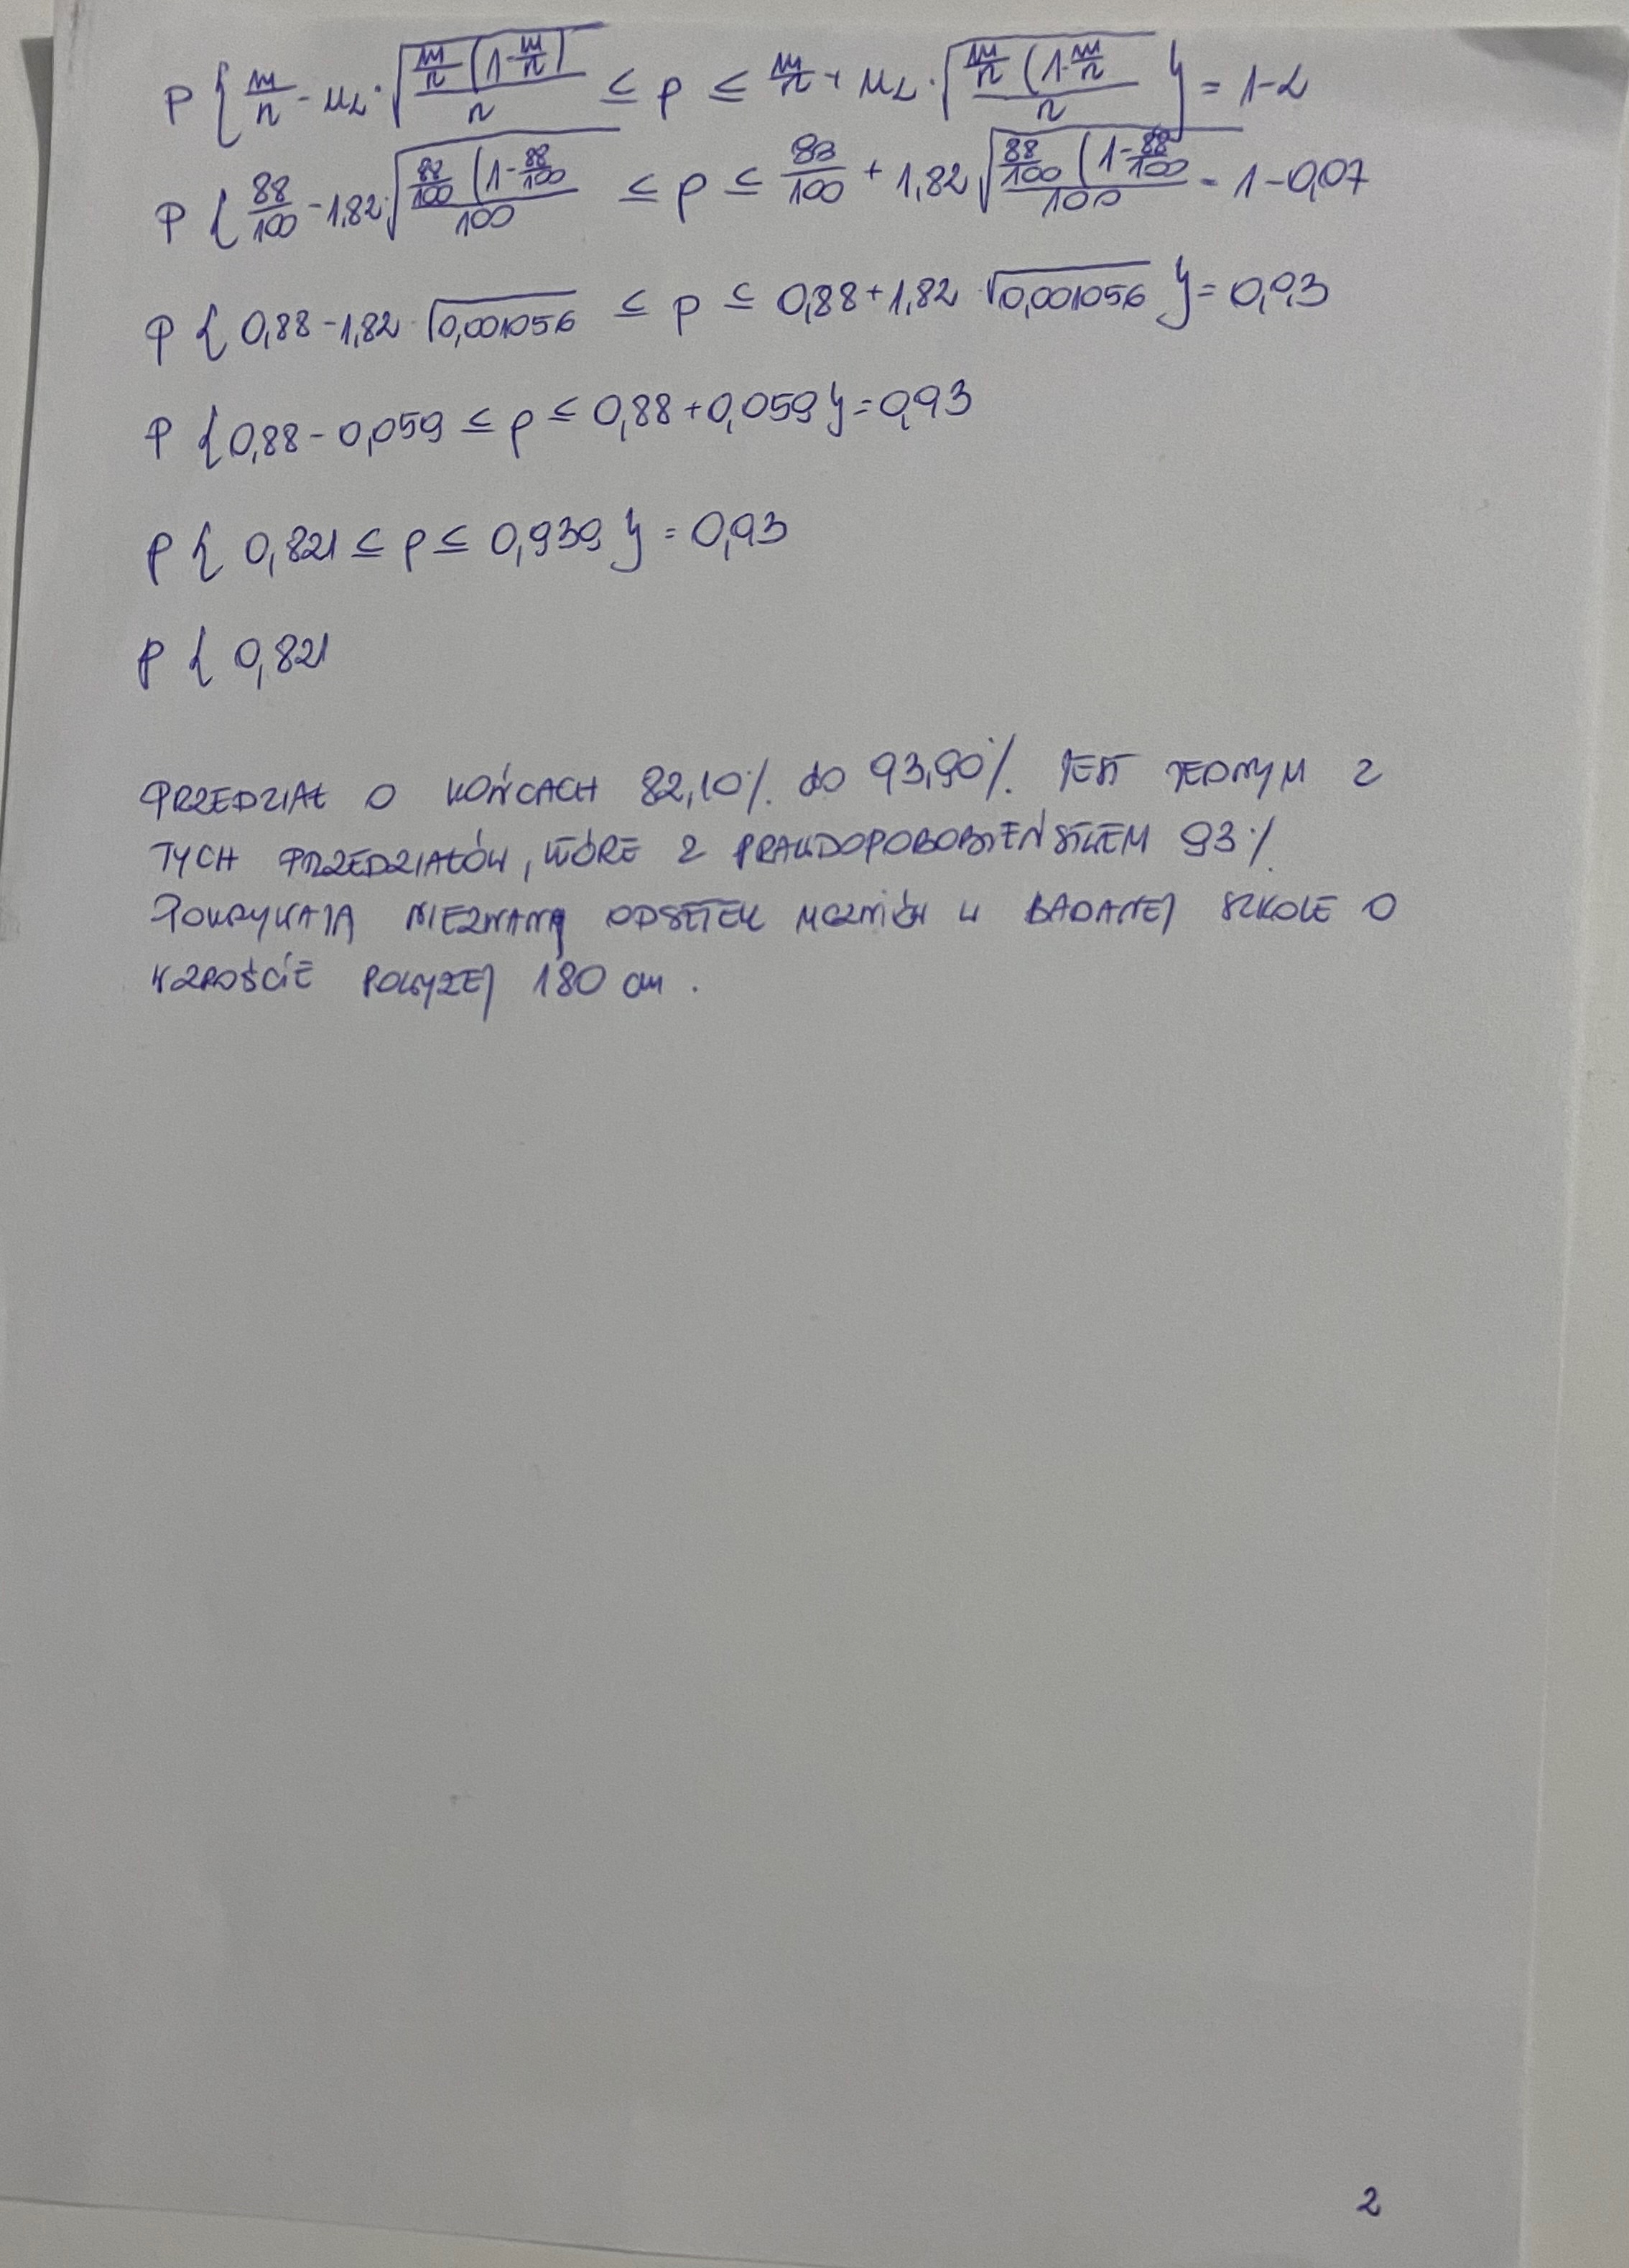 P { m/n - u_α · √(m/n (1 - m/n) / n) ≤ p ≤ m/n + u_α · √(m/n (1 - m/n / n) } = 1-α
P { 88/100 - 1,82 · √(88/100 (1 - 88/100 / 100) ≤ p ≤ 88/100 + 1,82 √(88/100 (1 - 88/100 / 100) = 1-0,07
P { 0,88 - 1,82 · √0,001056 ≤ p ≤ 0,88 + 1,82 · √0,001056 } = 0,93
P { 0,88 - 0,059 ≤ p ≤ 0,88 + 0,059 } = 0,93
P { 0,821 ≤ p ≤ 0,939 } = 0,93
P { 0,821
PRZEDZIAŁ O KOŃCACH 82,10% do 93,90% JEST JEDNYM Z
TYCH PRZEDZIAŁÓW, KTÓRE Z PRAWDOPOBOBIEŃSTWEM 93%
POKRYWAJĄ NIEZNANY ODSETEK UCZNIÓW W BADANEJ SZKOLE O
WZROŚCIE POWYŻEJ 180 cm.
2